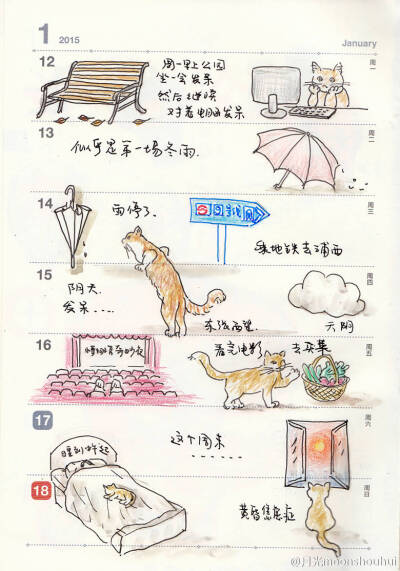 1 2015 January
12 周一
周一早上公园
坐一会发呆
然后继续
对着电脑发呆
13 周二
似乎是第一場冬雨.
14 周三
雨停了.
乘地铁去浦西
15 周四
阴天
发呆....
东张西望
16 周五
博物馆奇妙夜
看完电影
去买菜
17 周六
这个周末
......
18 周日
黄昏
@月光moonshouhui